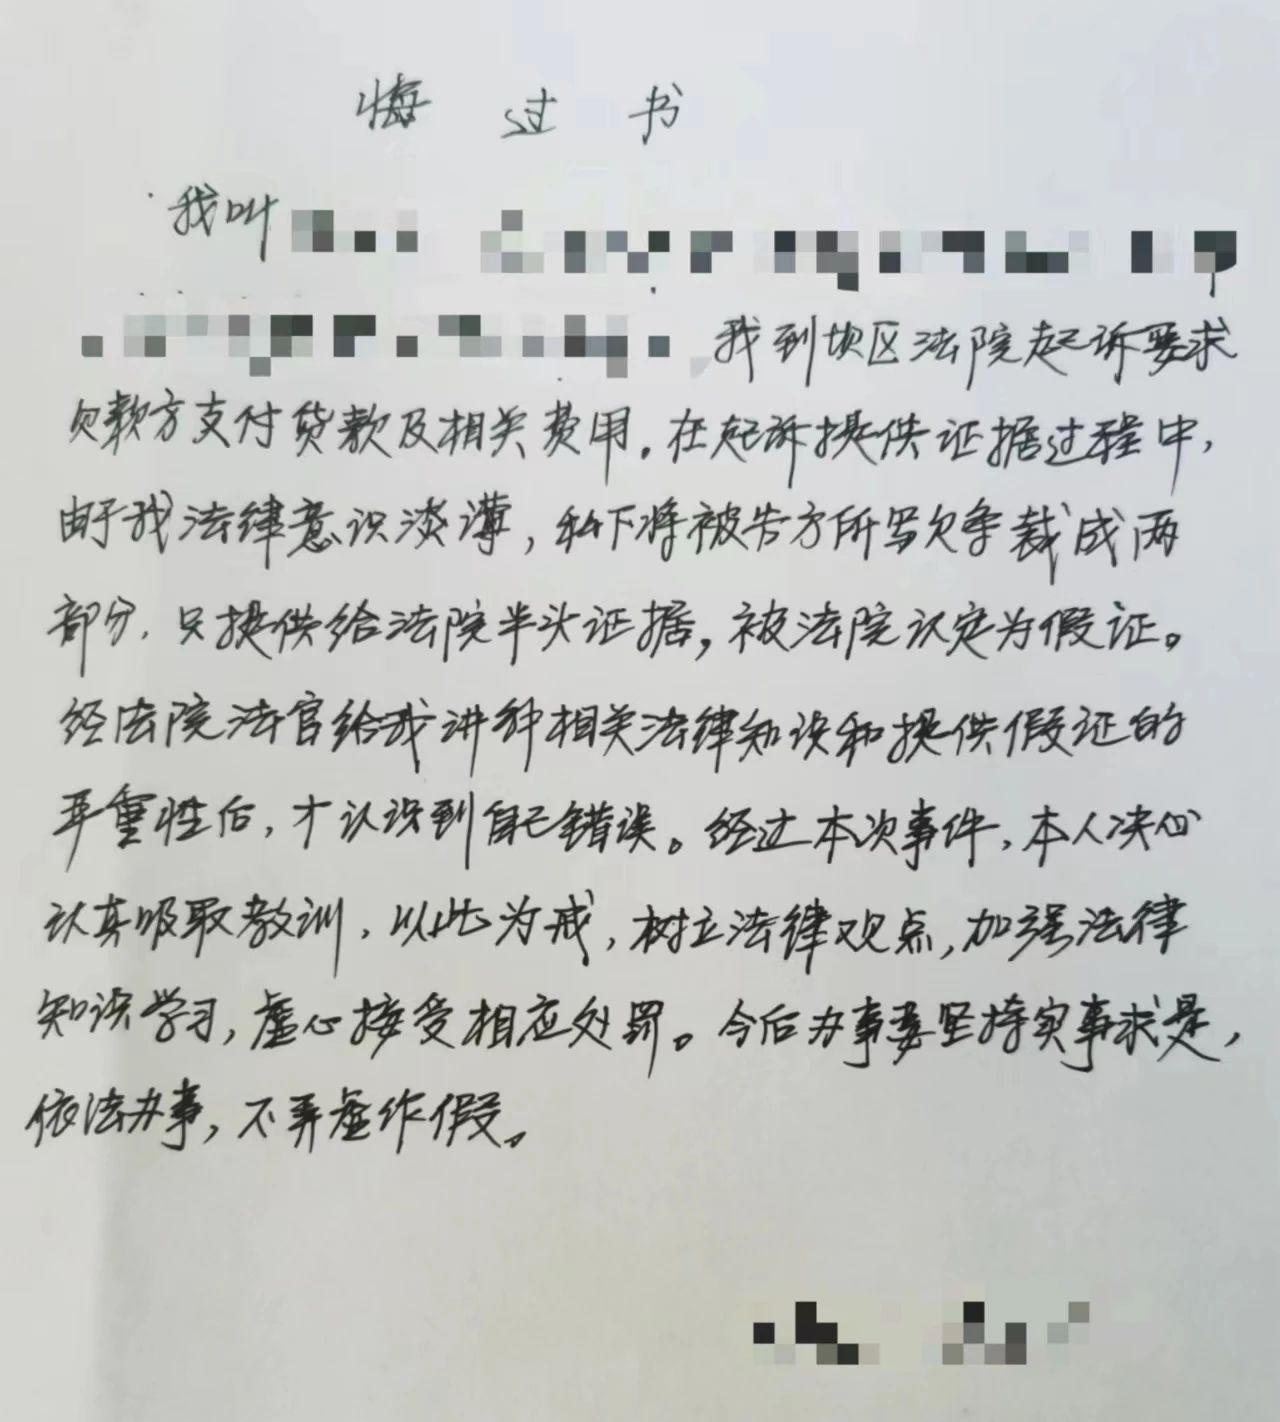 悔过书
我叫
我到坝区法院起诉要求
欠款方支付货款及相关费用。在起诉提供证据过程中，
由于我法律意识淡薄，私下将被告方所写欠条裁成两
部分，只提供给法院半头证据，被法院认定为假证。
经法院法官给我讲种相关法律知识和提供假证的
严重性后，才认识到自己错误。经过本次事件，本人决心
认真吸取教训，以此为戒，树立法律观点，加强法律
知识学习，虚心接受相应处罚。今后办事要坚持实事求是，
依法办事，不弄虚作假。